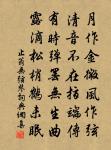 月作金徽風作弦
清音不在指端傳
有時彈罷無生曲
露滴松梢鶴未眠
止翁無弦琴詞與開善